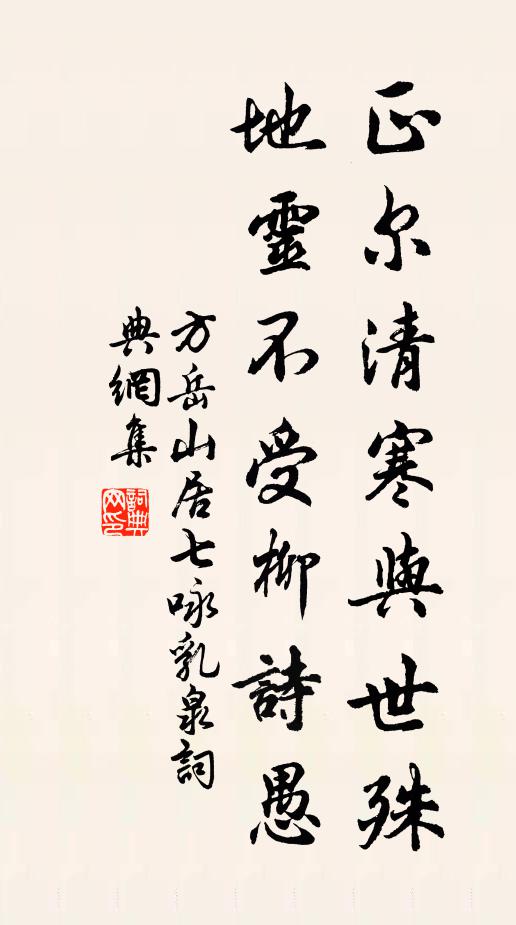 正尔清寒與世殊
地靈不受柳詩愚
方岳山居七咏乳泉詞
典網集
詞典網印